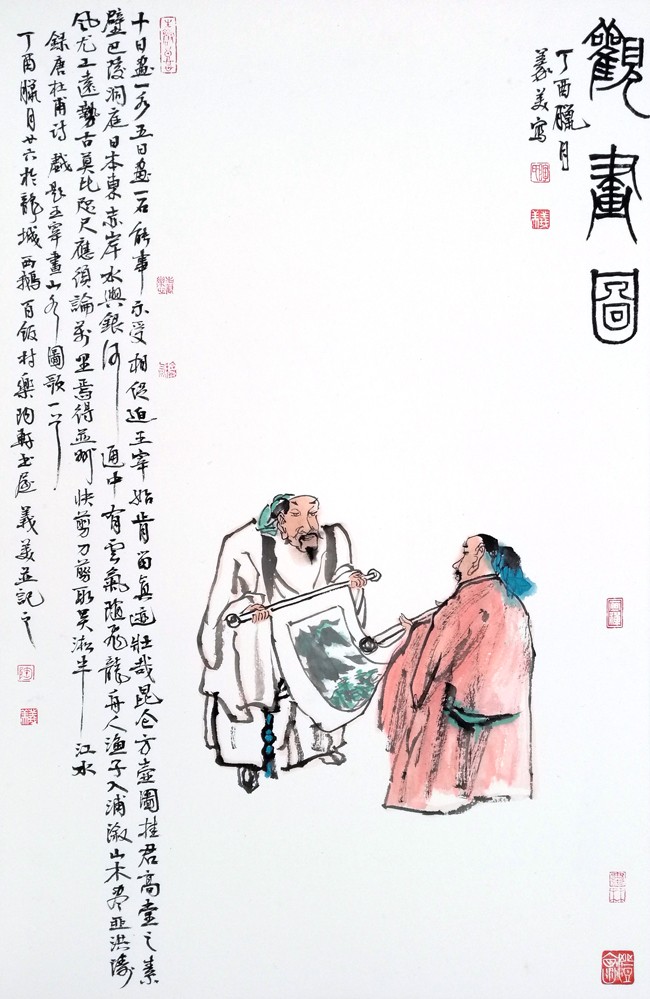 觀畫圖
丁酉臘月
義美寫
十日畫一水五日畫一石能事不受相促迫王宰始肯留真迹壯哉昆仑方壺圖挂君高堂之素
壁巴陵洞庭日本東赤岸水與銀河通中有雲氣隨飛龍舟人漁子入浦漵山木盡亞洪濤
風尤工遠勢古莫比咫尺應須論萬里焉得并州快剪刀剪取吳淞半江水
錄唐杜甫詩戲題王宰畫山水圖歌一首
丁酉臘月廿六於龍城西鵝百飯村樂陶軒书屋義美并記之